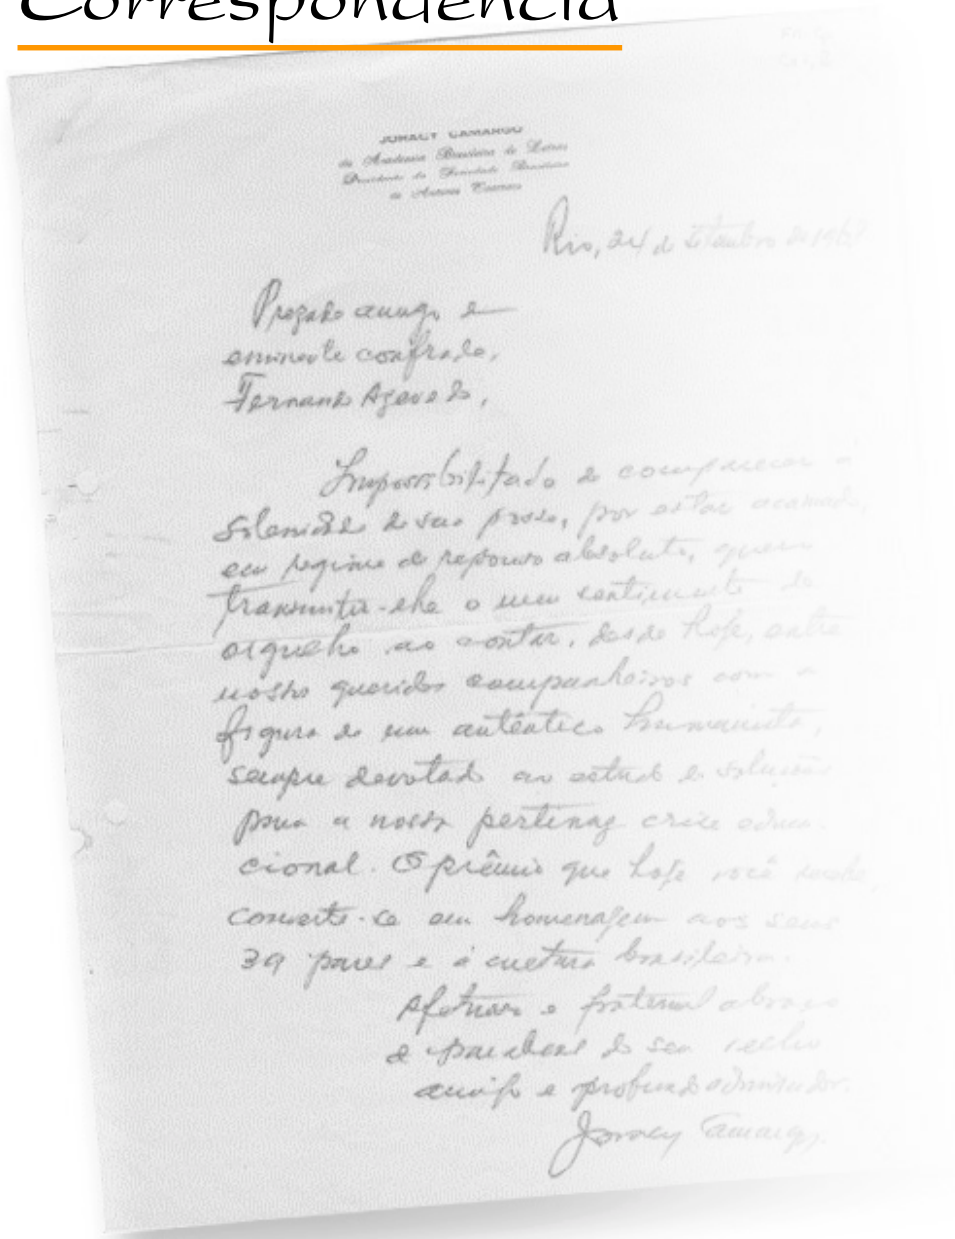 Correspondência
JORACY CAMARGO
da Academia Brasileira de Letras
Presidente da Sociedade Brasileira
de Autores Teatrais
Rio, 24 de setembro de 1968
Prezado amigo e
eminente confrade,
Fernando Azevedo,
Impossibilitado de comparecer à
solenidade de sua posse, por estar acamado,
em regime de repouso absoluto, quero
transmitir-lhe o meu sentimento de
orgulho ao contar, desde hoje, entre
nossos queridos companheiros com a
figura de um autêntico humanista,
sempre devotado ao estudo e solução
para a nossa pertinaz crise educa-
cional. O prêmio que hoje você recebe,
converte-se em homenagem aos seus
39 pares e à cultura brasileira.
Afetuoso e fraternal abraço
e parabens do seu velho
amigo e profundo admirador.
Joracy Camargo,